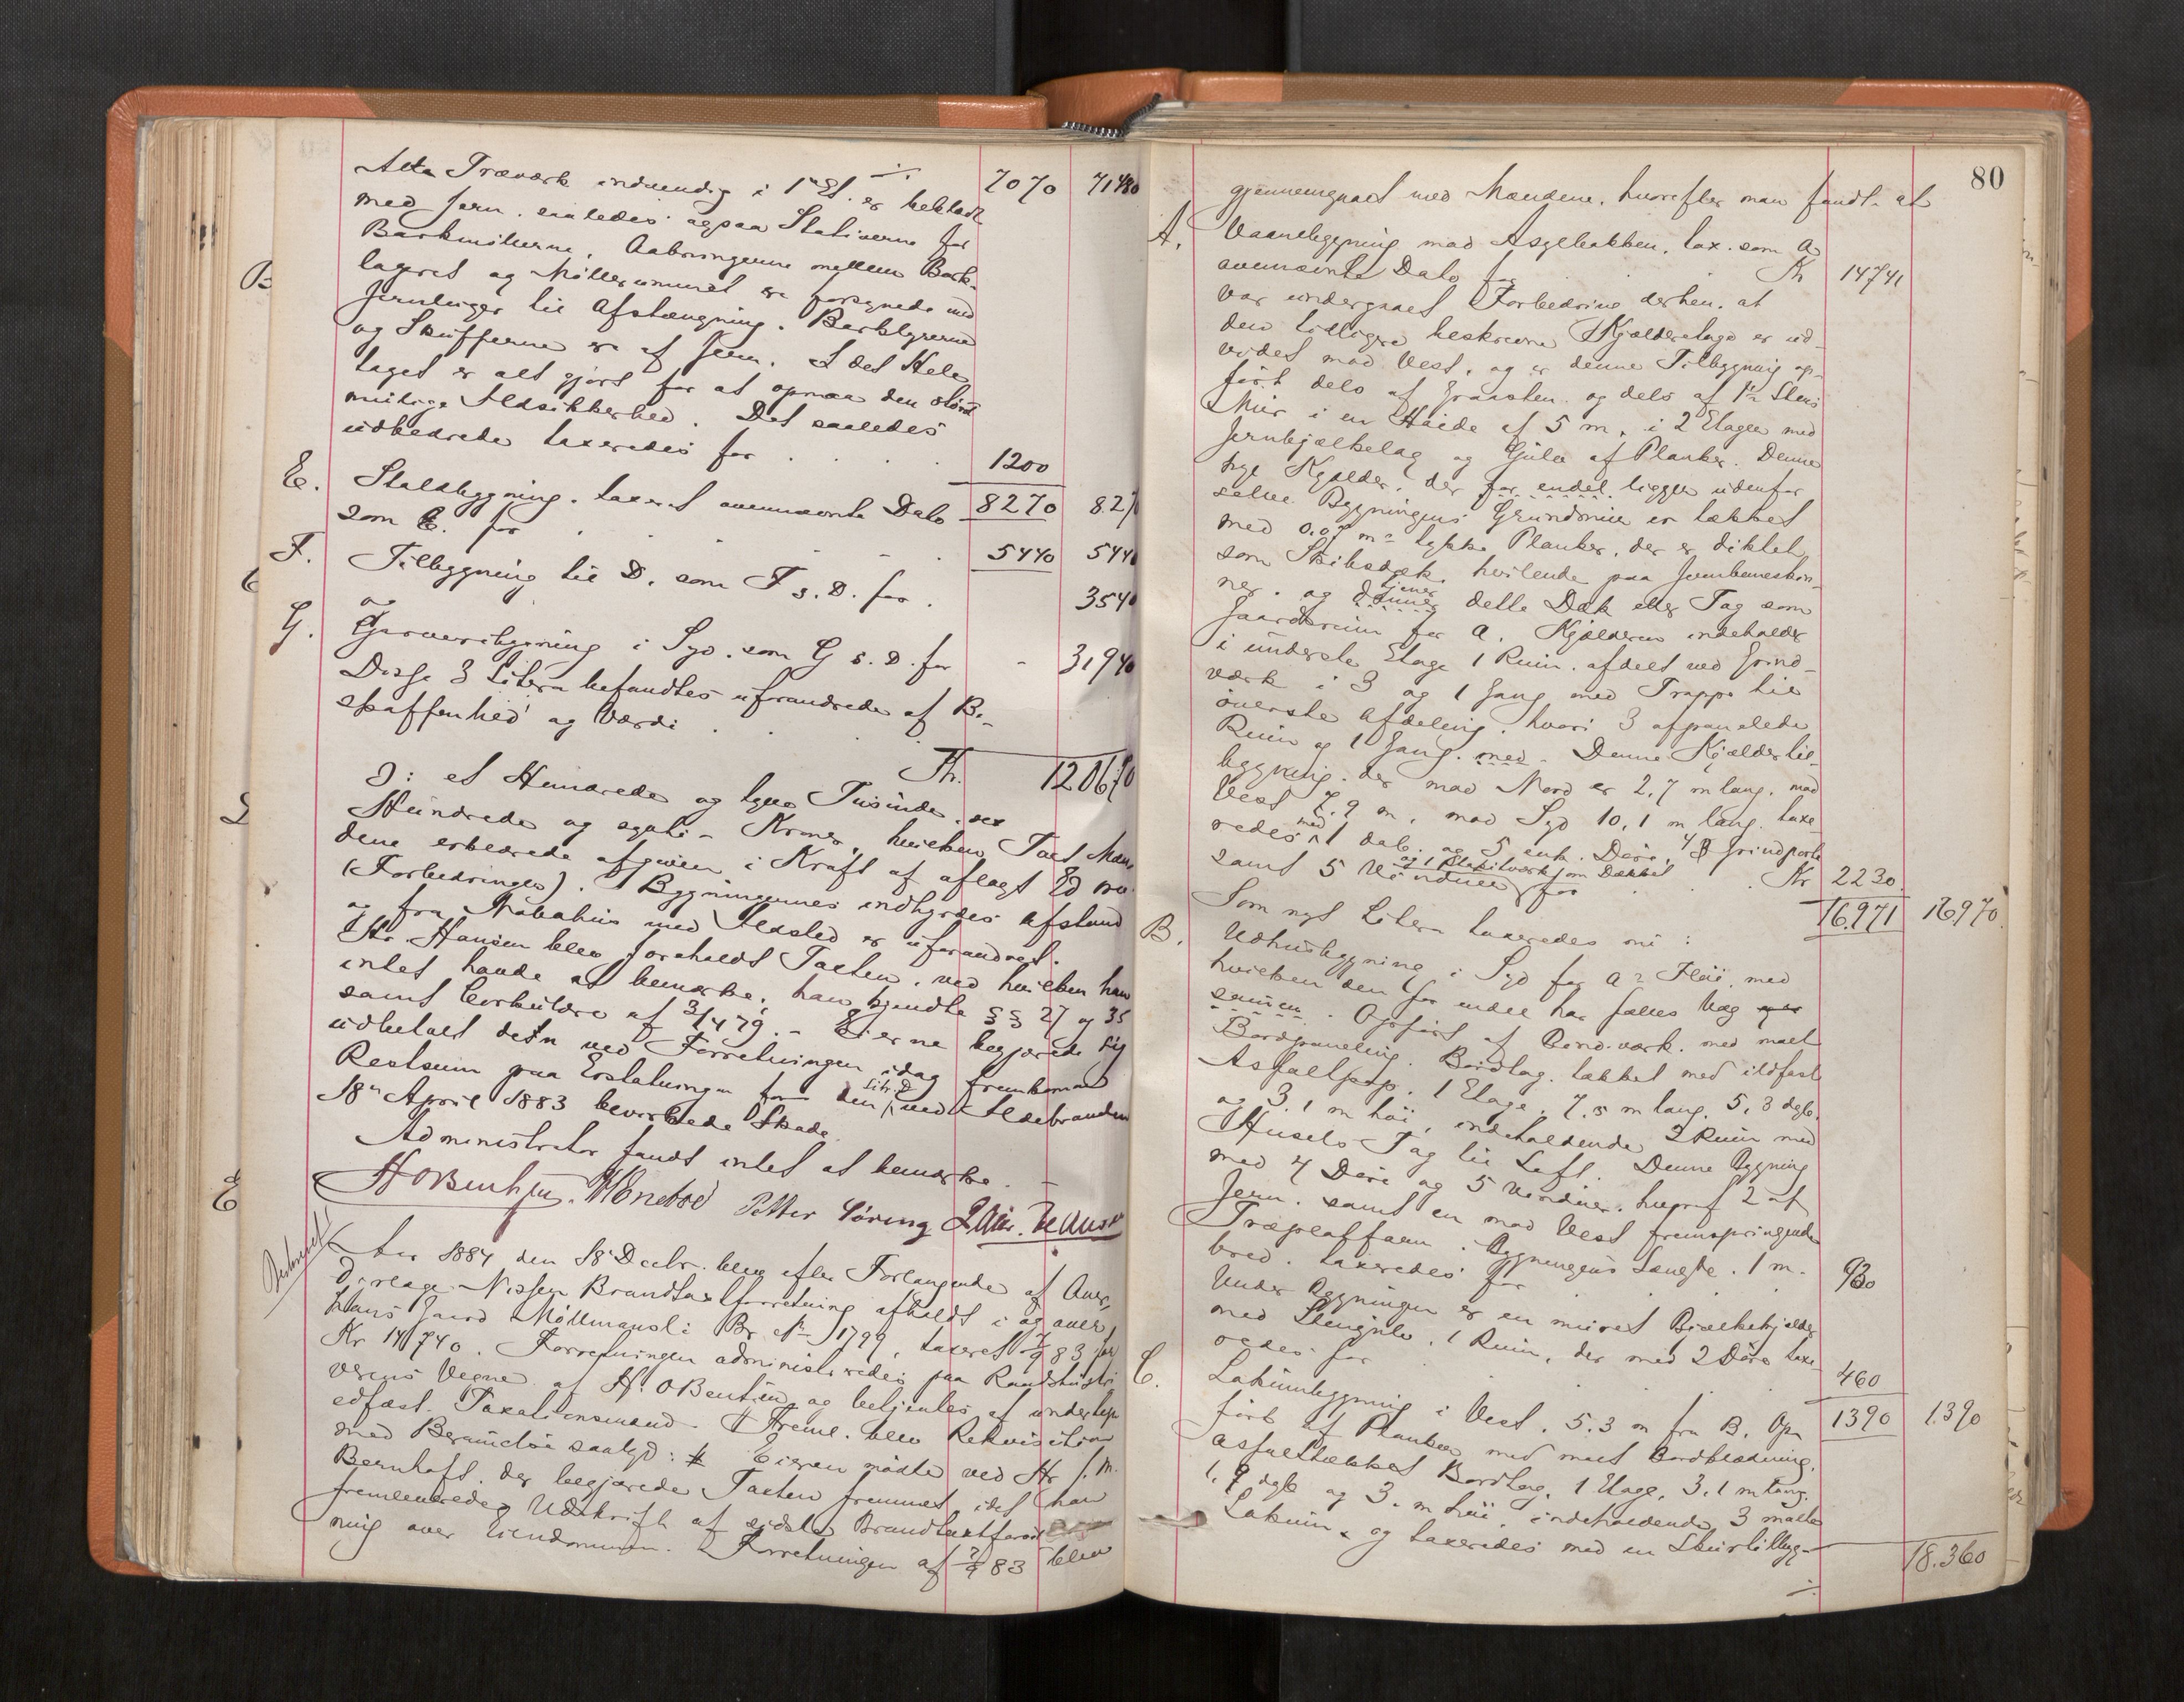 ./.
Alta Træværk indvendig i 1ste Et. er beklædt 7070 71480
med Jern. saaledes ogsaa Stativerne for
Barkmøllerne. Aabningerne mellem Bark-
lageret og Møllerummet er forsynede med
Jernluger til Afstængning. Barkbyrerne
og Skufferne er af Jern. I det Hele
taget er alt gjort for at opnaa den størst
mulige Ildsikkerhed. Det saaledes
udbedrede taxeredes for . . . . 1200
E. Staldbygning. taxeret ovennævnte Dato 8270 827
som E. for . . . . 5440 5440
F. Tilbygning til D. som F s. D. for . 3540
og
G. Garveribygning i Syd. som G s. D. for - 31940
Disse 3 Litera befandtes uforandrede af Be-
skaffenhed og Værdi . . .
Kr. 120670
ↄ: et Hundrede og tyve Tusinde. sex
Hundrede og sytti - Kroner, hvilken Taxt Mæn-
dene erklærede afgiven i Kraft af aflagt Ed
(Forbedringer). Bygningernes indbyrdes Afstand
og fra Nabohus med Ildsted er uforandret.
Hr. Hansen blev foreholdt Taxten, ved hvilken han
intet havde at bemærke; han kjendte §§ 27 og 35
samt Cirkulære af 3/4 79. - Eierne begjærede sig
udbetalt den ved Forretningen idag fremkomne
Restsum paa Erstatningen for den Litr. D ved Ildebranden
18de April 1883 bevirkede Skade.
Administrator fandt intet at bemærke. -
Petter Søreng
Aar 1884 den 18 Decbr. blev efter Forlangende af Over-
Nissen Brandtaxtforretning afholdt i og over
hans Gaard Møllmansli Br. No 1799, taxeret 7/9 83 for
Kr 14740. Forretningen administreredes paa Raadstuskri-
verens Vegne af H. O Bentsen og betjentes af undertegn.
edfæst. Taxationsmænd. Freml. blev Rekvisition
med Berammelse saalyd: # Eieren mødte ved Hr J. M.
Bernhoft. der begjærede Taxten fremmet, idet han
fremleverede Udskrift af sidste Brandtaxtforret-
ning over Eiendommen. Forretningen af 7/9 83 blev
80
gjennemgaaet med Mændene, hvorefter man fandt at
A. Vaanebygning mod Asylbakken, tax. som A
ovennævnte Dato for . . . Kr 14741
var undergaaet Forbedring derhen. at
den tidligere beskrevne Kjælderetage er ud-
videt mod Vest, og er denne Tilbygning op-
ført dels af Graasten og dels af 1½ Stens
Mur i en Høide af 5 m. i 2 Etager med
Jernbjælkelag og Gulv af Planker. Denne
nye Kjælder, der for endel ligger udenfor
selve Bygningens Grundmur er tækket
med 0.07 m tykke Planker, der er diktet
som Skibsdæk. hvilende paa Jernbaneskin-
ner. og danner tjener dette Dæk eller Tag som
Gaardsrum for A. Kjælderen indeholder
i underste Etage 1 Rum. afdelt ved Grind-
værk i 3 og 1 Gang med Trappe til
øverste Afdeling. hvori 3 afpanelede
Rum og 1 Gang. med - Denne Kjældertil-
bygning. der mod Nord er 2,7 m lang. mod
Vest 7,9 m, mod Syd 10,1 m lang. taxe-
redes med 1 dob. og 5 enk. Døre, 4 Grindporte
samt 5 Vinduer og 1 Stakitværk om Dækket for . . Kr 2230
16.971 16970
Som nyt Litera taxeredes nu:
B. Udhusbygning i Syd for A's Fløi, med
hvilken den for endel har fælles Væg
sammen. Opført af Bind.værk. med malt
Bordpaneling. Bordtag. tækket med ildfast
Asfaltpap. 1 Etage, 7.5 m lang. 5,3 dyb.
og 3.1 m høi, indeholdende 2 Rum med
Husets Tag til Loft. Denne Bygning
med 4 Døre og 5 Vinduer, hvoraf 2 af
Jern. samt en mod Vest fremspringende
Træplatform. Bygningens Længde. 1 m.
bred. taxeredes for . . . . 930
Under Bygningen er en muret Bjælkekjælder
med Stengulv, 1 Rum, der med 2 Døre taxe-
redes for . . . . 460
1390 1.390
C. Lokumbygning i Vest. 5.3 m fra B. Op-
ført af Planker med malt Bordklædning.
asfalttækket Bordtag. 1 Etage, 3,1 m lang.
1.9 dyb og 3. m høi. indeholdende 3 malte
Lokum. og taxeredes med en Skurtilbyg-
18.360
./.